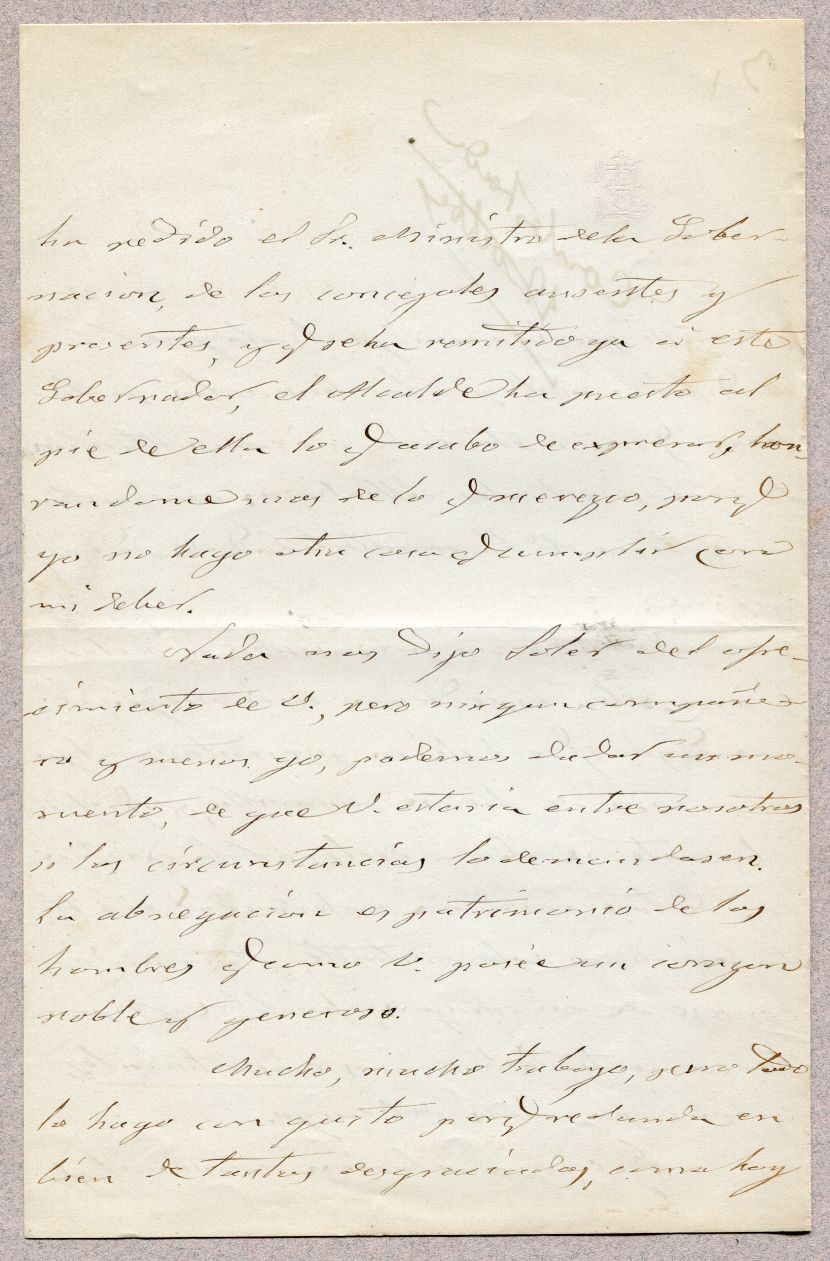 ha pedido el Sr. Ministro dela Gober-
nacion, de los concejales ausentes y
presentes, y q seha remitido ya á este
Gobernador, el Alcalde ha puesto al
pié de ella lo q acabo de expresar, hon-
randome mas de lo q merezco, porq
yo no hago otra cosa q cumplir con
mi deber.
Nada nos dijo Soler del ofre-
cimiento de V., pero ningun compañe-
ro y menos yo, podemos dudar un mo-
mento, de que V. estaria entre nosotros
si las circunstancias lo demandasen.
La abnegacion es patrimonio de los
hombres q como V. posée un corazon
noble y generoso.
Mucho, mucho trabajo, pero todo
lo hago con gusto porq redunda en
bien de tantos desgraciados, como hay